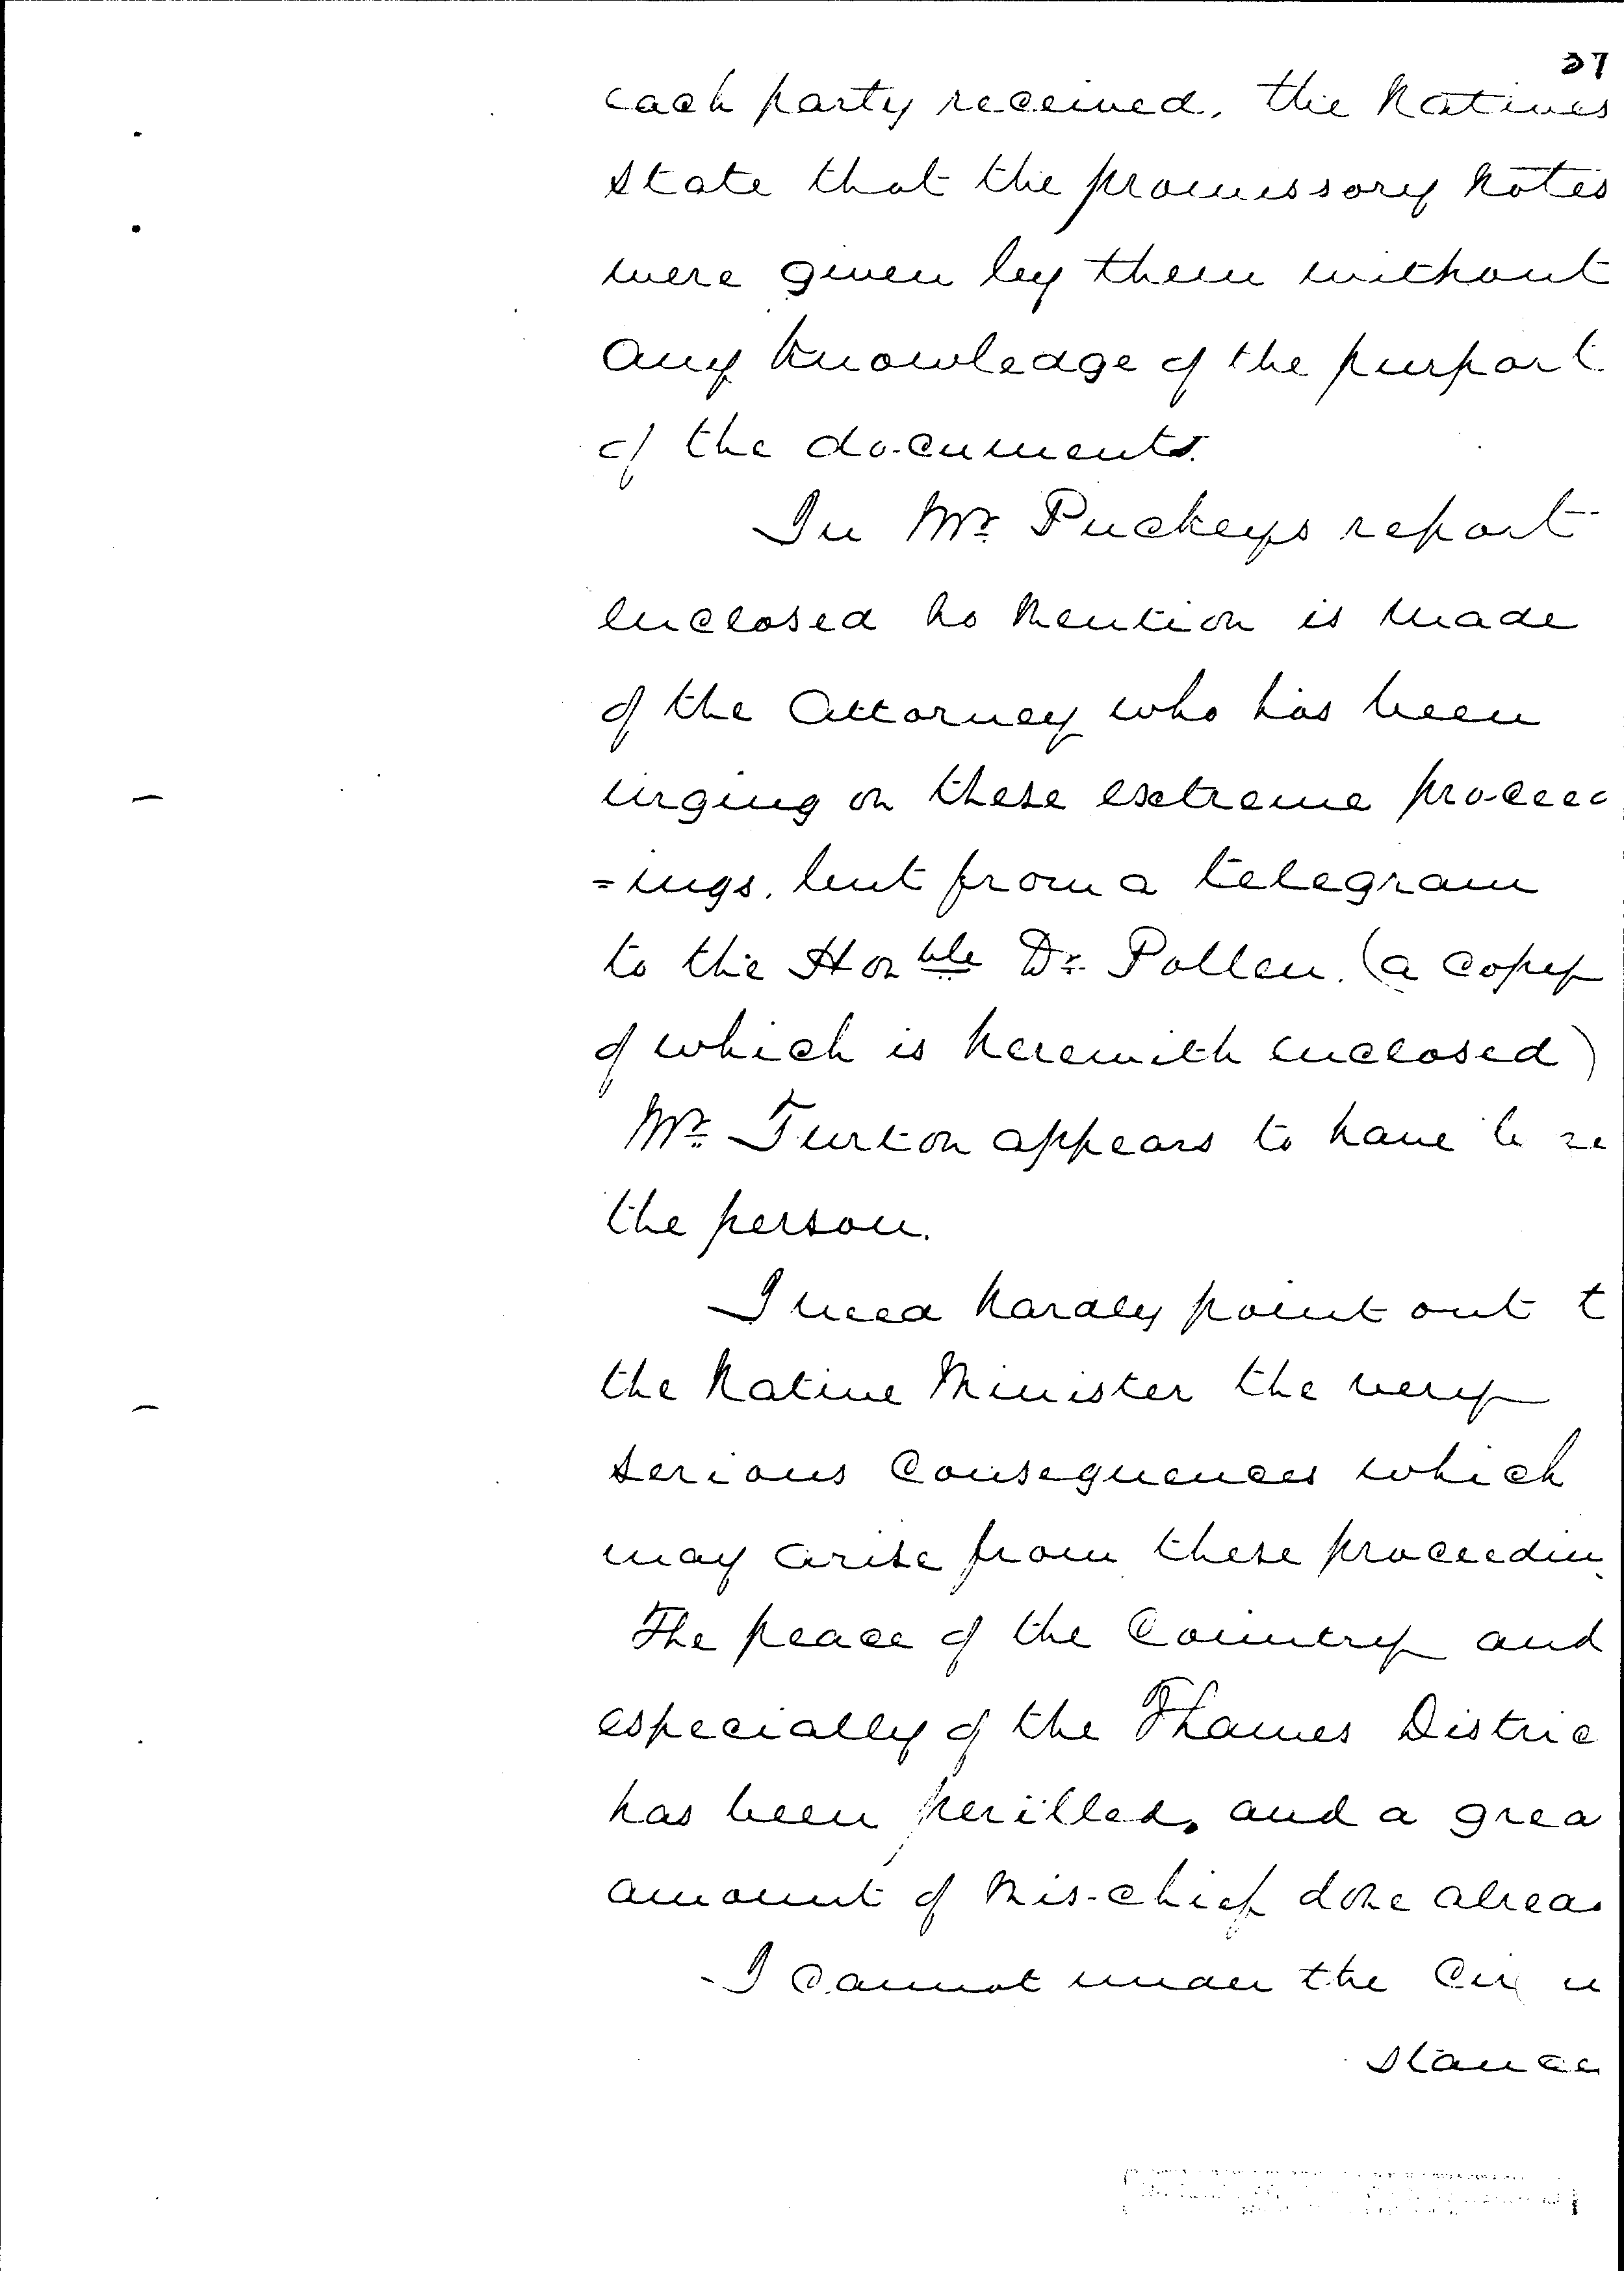 37
each party received, the Natives
state that the promissory notes
were given by them without
any knowledge of the purport
of the documents.
In Mr. Puckeys report
enclosed no mention is made
of the Attorney who has been
urging on these extreme proceed
=ings, but from a telegram
to the Honble Dr. Pollen. (a copy
of which is herewith enclosed)
Mr. Turton appears to have be
the person.
I need hardly point out t
the Native Minister the very
serious consequences which
may arise from these proceedin
The peace of the Country and
especially of the Thames Distric
has been perilled, and a grea
amount of mis-chief done alrea
I cannot under the Circu
stance